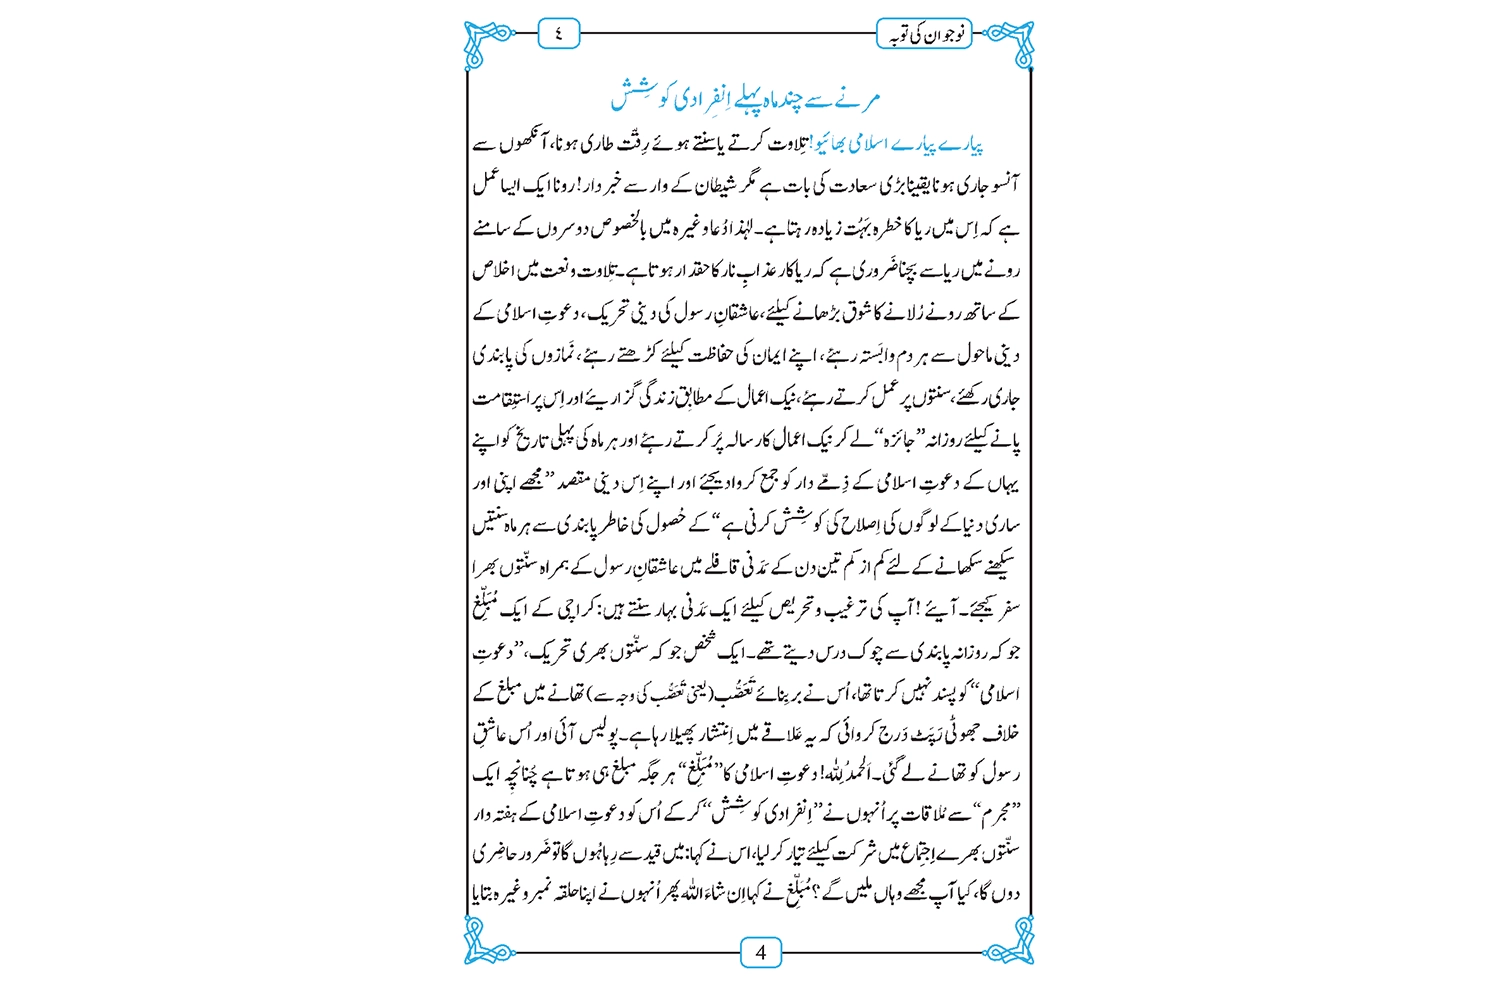 نوجوان کی توبہ
٤
مرنے سے چند ماہ پہلے اِنفِرادی کوشِش
پیارے پیارے اسلامی بھائیو! تِلاوت کرتے یا سنتے ہوئے رِقّت طاری ہونا، آنکھوں سے
آنسو جاری ہونا یقیناً بڑی سعادت کی بات ہے مگر شیطان کے وار سے خبردار! رونا ایک ایسا عمل
ہے کہ اِس میں ریا کا خطرہ بَہُت زیادہ رہتا ہے۔ لہٰذا دُعا وغیرہ میں بالخصوص دوسروں کے سامنے
رونے میں ریا سے بچنا ضَروری ہے کہ ریا کار عذابِ نار کا حقدار ہوتا ہے۔ تِلاوت و نعت میں اخلاص
کے ساتھ رونے رُلانے کا شوق بڑھانے کیلئے، عاشقانِ رسول کی دینی تحریک، دعوتِ اسلامی کے
دینی ماحول سے ہر دم وابَستہ رہئے، اپنے ایمان کی حفاظت کیلئے کڑھتے رہئے، نَمازوں کی پابندی
جاری رکھئے، سنتوں پر عمل کرتے رہئے، نیک اعمال کے مطابِق زندگی گزاریئے اور اِس پر استِقامت
پانے کیلئے روزانہ ”جائزہ“ لے کر نیک اعمال کا رسالہ پُر کرتے رہئے اور ہر ماہ کی پہلی تاریخ کو اپنے
یہاں کے دعوتِ اسلامی کے ذِمّے دار کو جمع کروا دیجئے اور اپنے اِس دینی مقصد ”مجھے اپنی اور
ساری دنیا کے لوگوں کی اِصلاح کی کوشِش کرنی ہے“ کے حُصول کی خاطر پابندی سے ہر ماہ سنتیں
سیکھنے سکھانے کے لئے کم از کم تین دن کے مَدَنی قافلے میں عاشقانِ رسول کے ہمراہ سنّتوں بھرا
سفر کیجئے۔ آیئے! آپ کی ترغیب و تحریص کیلئے ایک مَدَنی بہار سنتے ہیں: کراچی کے ایک مُبَلِّغ
جو کہ روزانہ پابندی سے چوک درس دیتے تھے۔ ایک شخص جو کہ سنّتوں بھری تحریک، ”دعوتِ
اسلامی“ کو پسند نہیں کرتا تھا، اُس نے بربِنائے تَعَصُّب (یعنی تَعَصُّب کی وجہ سے) تھانے میں مبلغ کے
خلاف جھوٹی رَپَٹ دَرج کروائی کہ یہ عَلاقے میں اِنتشار پھیلا رہا ہے۔ پولیس آئی اور اُس عاشقِ
رسول کو تھانے لے گئی۔ اَلحمدُ لِلّٰہ! دعوتِ اسلامی کا ”مُبَلِّغ“ ہر جگہ مبلغ ہی ہوتا ہے چُنانچِہ ایک
”مجرم“ سے مُلاقات پر اُنہوں نے ”اِنفرادی کوشِش“ کر کے اُس کو دعوتِ اسلامی کے ہفتہ وار
سنّتوں بھرے اِجتِماع میں شرکت کیلئے تیار کر لیا، اس نے کہا: میں قید سے رِہا ہُوں گا تو ضَرور حاضِری
دوں گا، کیا آپ مجھے وہاں ملیں گے؟ مُبَلِّغ نے کہا اِن شاءَ اللہ پھر اُنہوں نے اپنا حلقہ نمبر وغیرہ بتایا
4